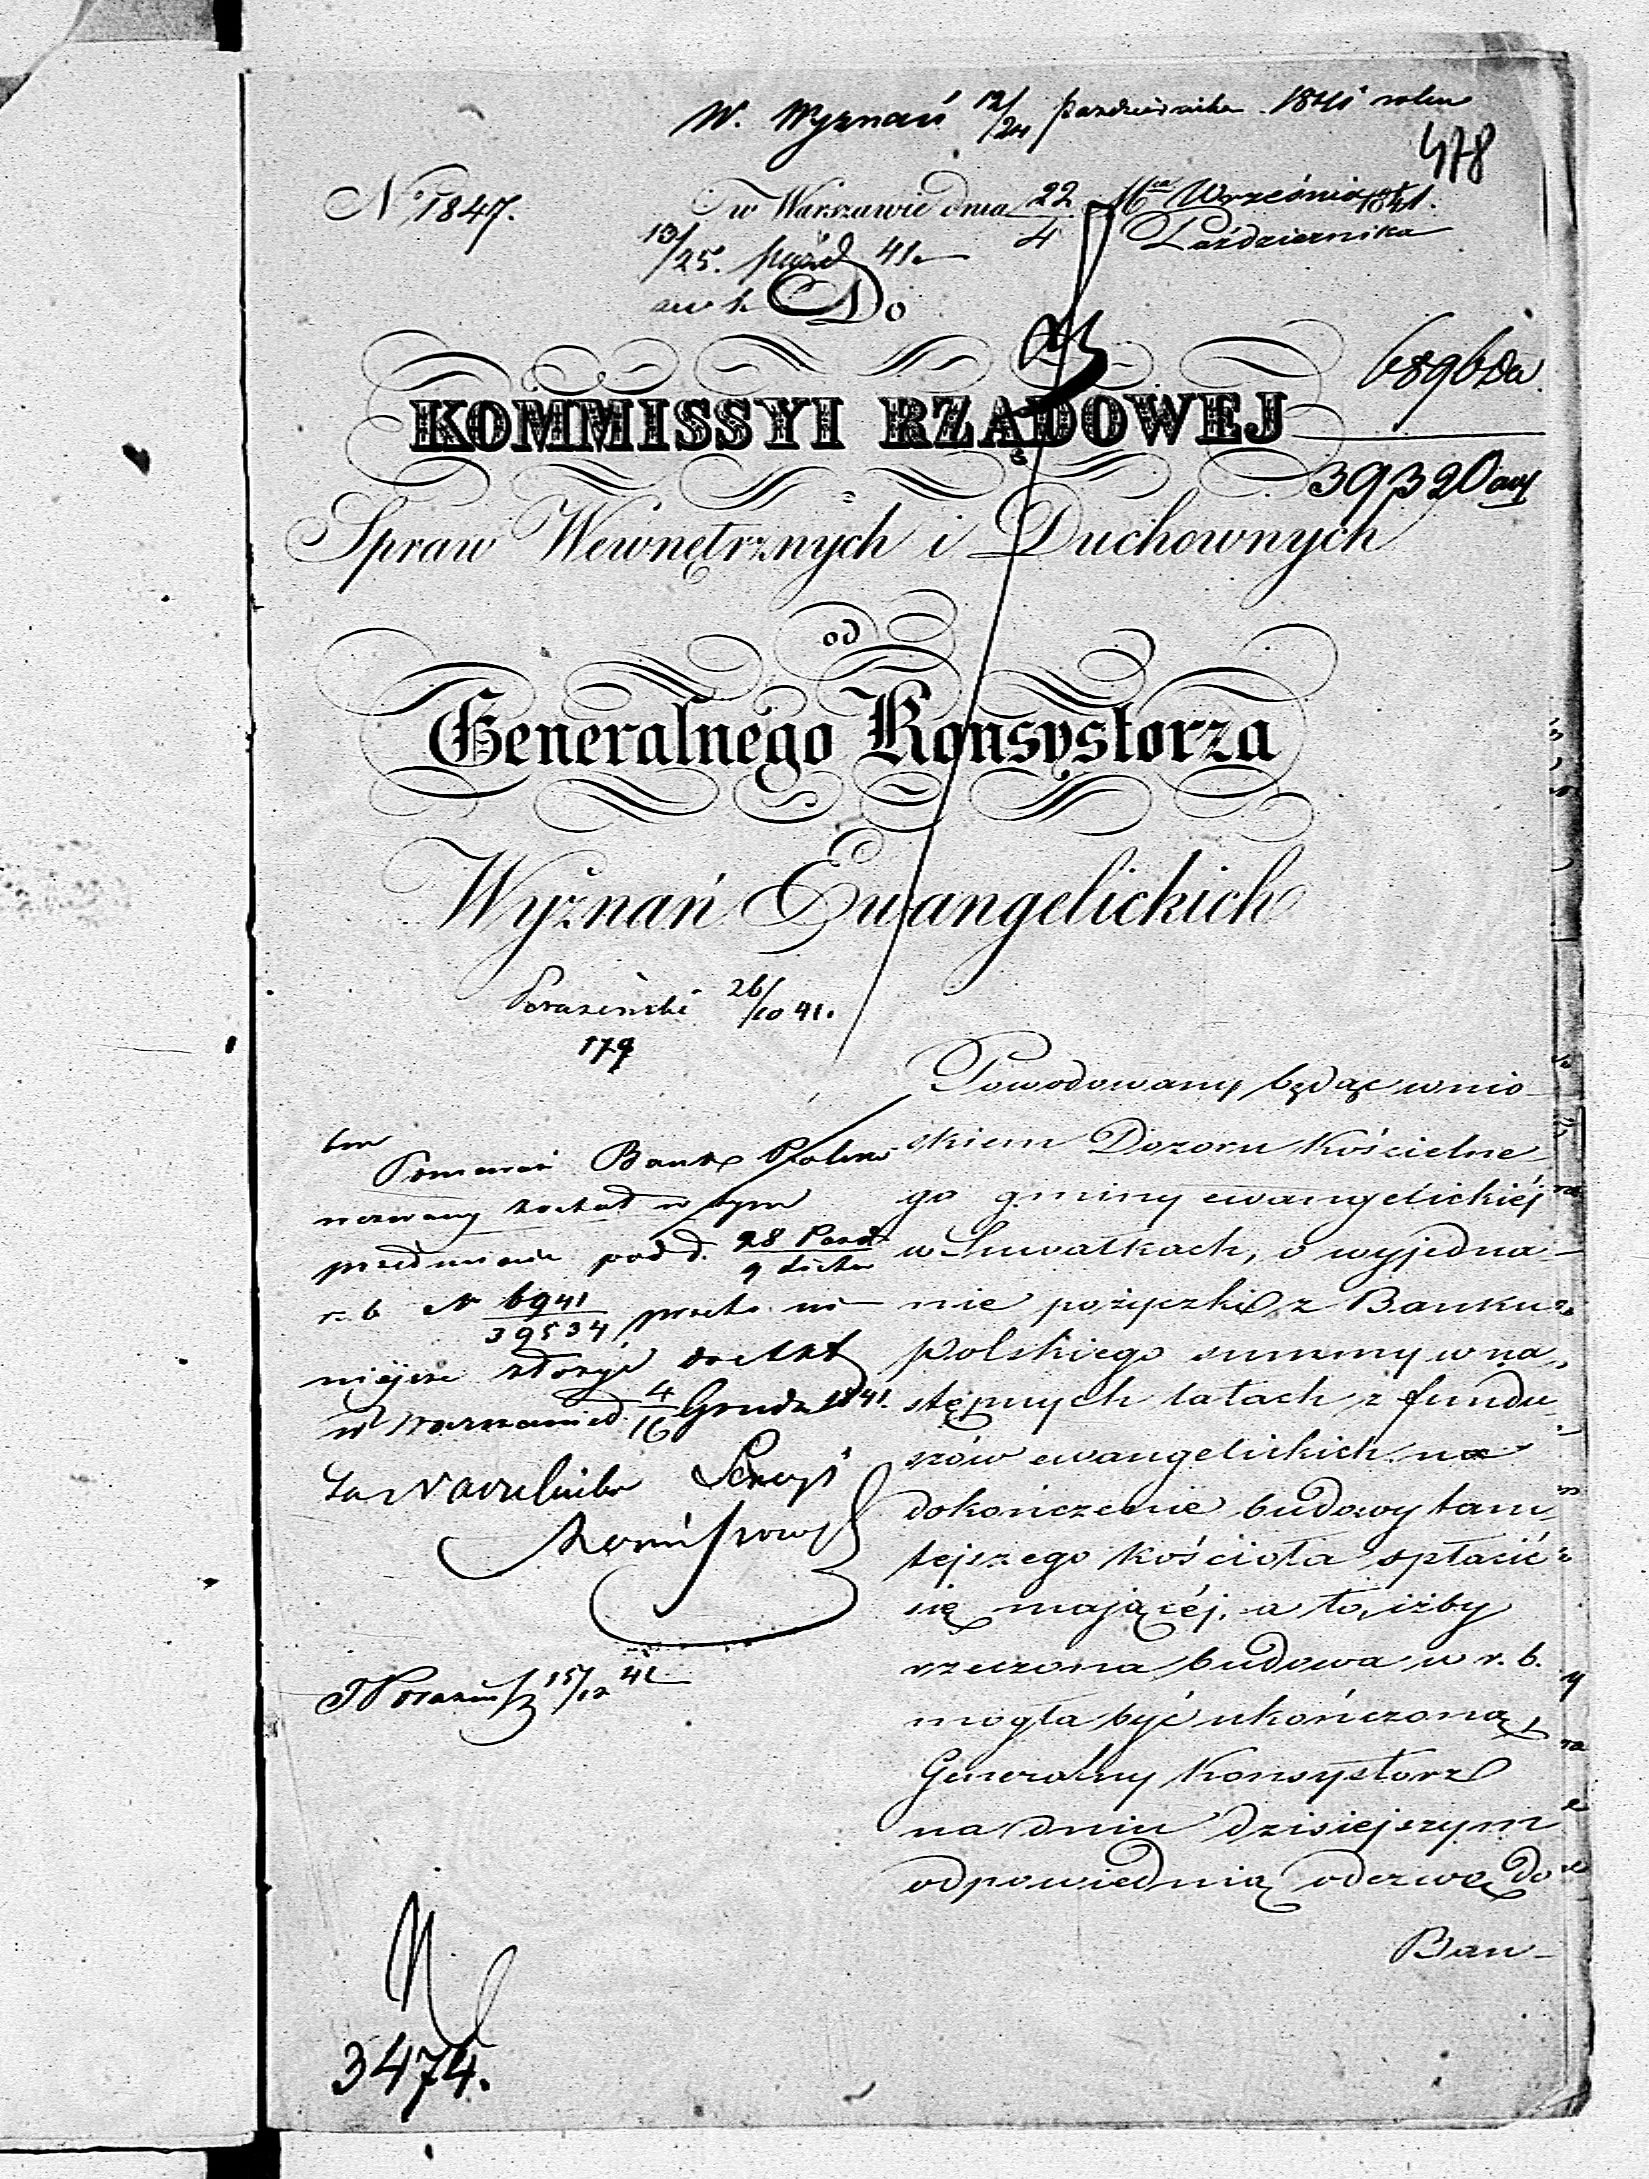 W. Wyznań 12/24 Października 1841 roku
478
No 1847.
w Warszawie dnia 22 Września 1841.
4 Października
13/25. paźd 41.
Do
6896
KOMMISSYI RZĄDOWEJ
39320
Spraw Wewnętrznych i Duchownych
od
Generalnego Konsystorza
Wyznań Ewangelickich
26/10 41.
179
Powodowany będąc wnio-
skiem Dozoru Kościelne-
go gminy ewangelickiéj
w Suwałkach, o wyjedna-
nie pożyczki z Banku
Polskiego summy w na-
stępnych latach z fundu-
szów ewangelickich na
dokończenie budowy tam-
tejszego Kościoła spłacić
się mającéj, a to, iżby
rzeczona budowa w r. b.
mogła być ukończoną,
Generalny Konsystorz
na dniu dzisiejszym
odpowiednią odezwę do
Ban-
Ponieważ Bank Polski
wezwany został w tym
przedmiocie pod d. 28 Paźd
r. b. N 6941/39534, przeto ni-
niejsze złożyć do Akt
w Warszawie d. 4/16 Grudn 1841.
Za Naczelnika Sekcyi
15/12 41
3474.